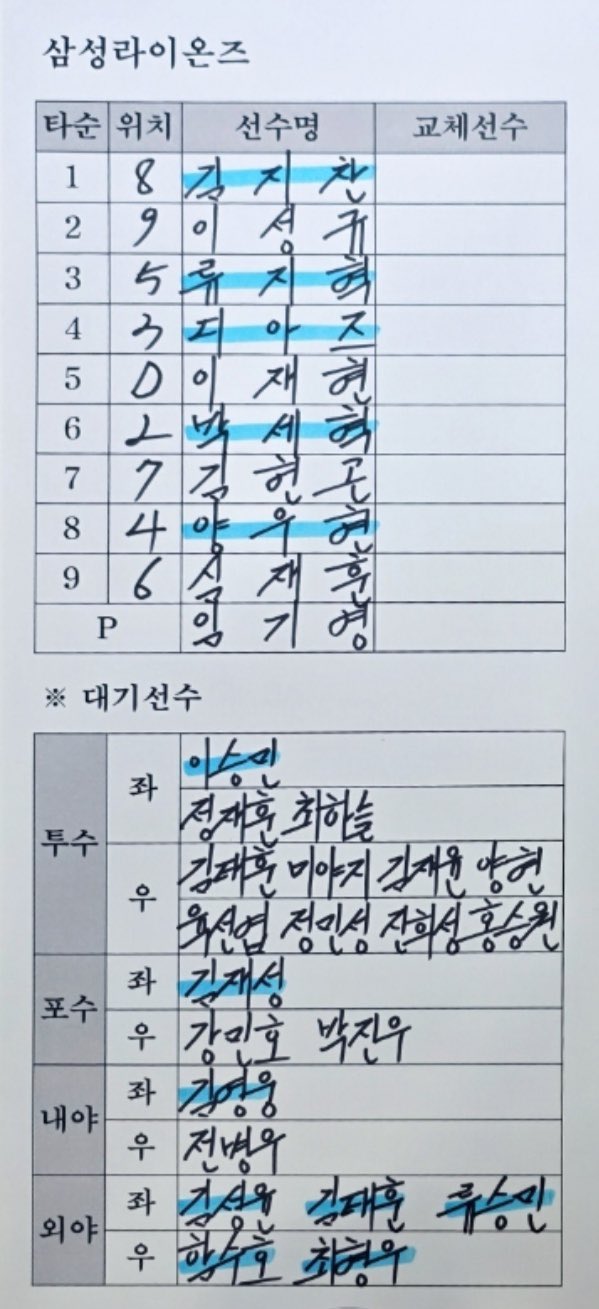 삼성라이온즈
타순 위치 선수명 교체선수
1 8 김지찬
2 9 이성규
3 5 류지혁
4 3 디아즈
5 D 이재현
6 2 박세혁
7 7 김헌곤
8 4 양우현
9 6 심재훈
P 임기영
※ 대기선수
투수 좌 이승민
정재훈 최하늘
우 김태훈 미야지 김재윤 양현
육선엽 정민성 잔희성 홍승원
포수 좌 김재성
우 강민호 박진우
내야 좌 김영웅
우 전병우
외야 좌 김성윤 김태훈 류승민
우 함수호 최형우